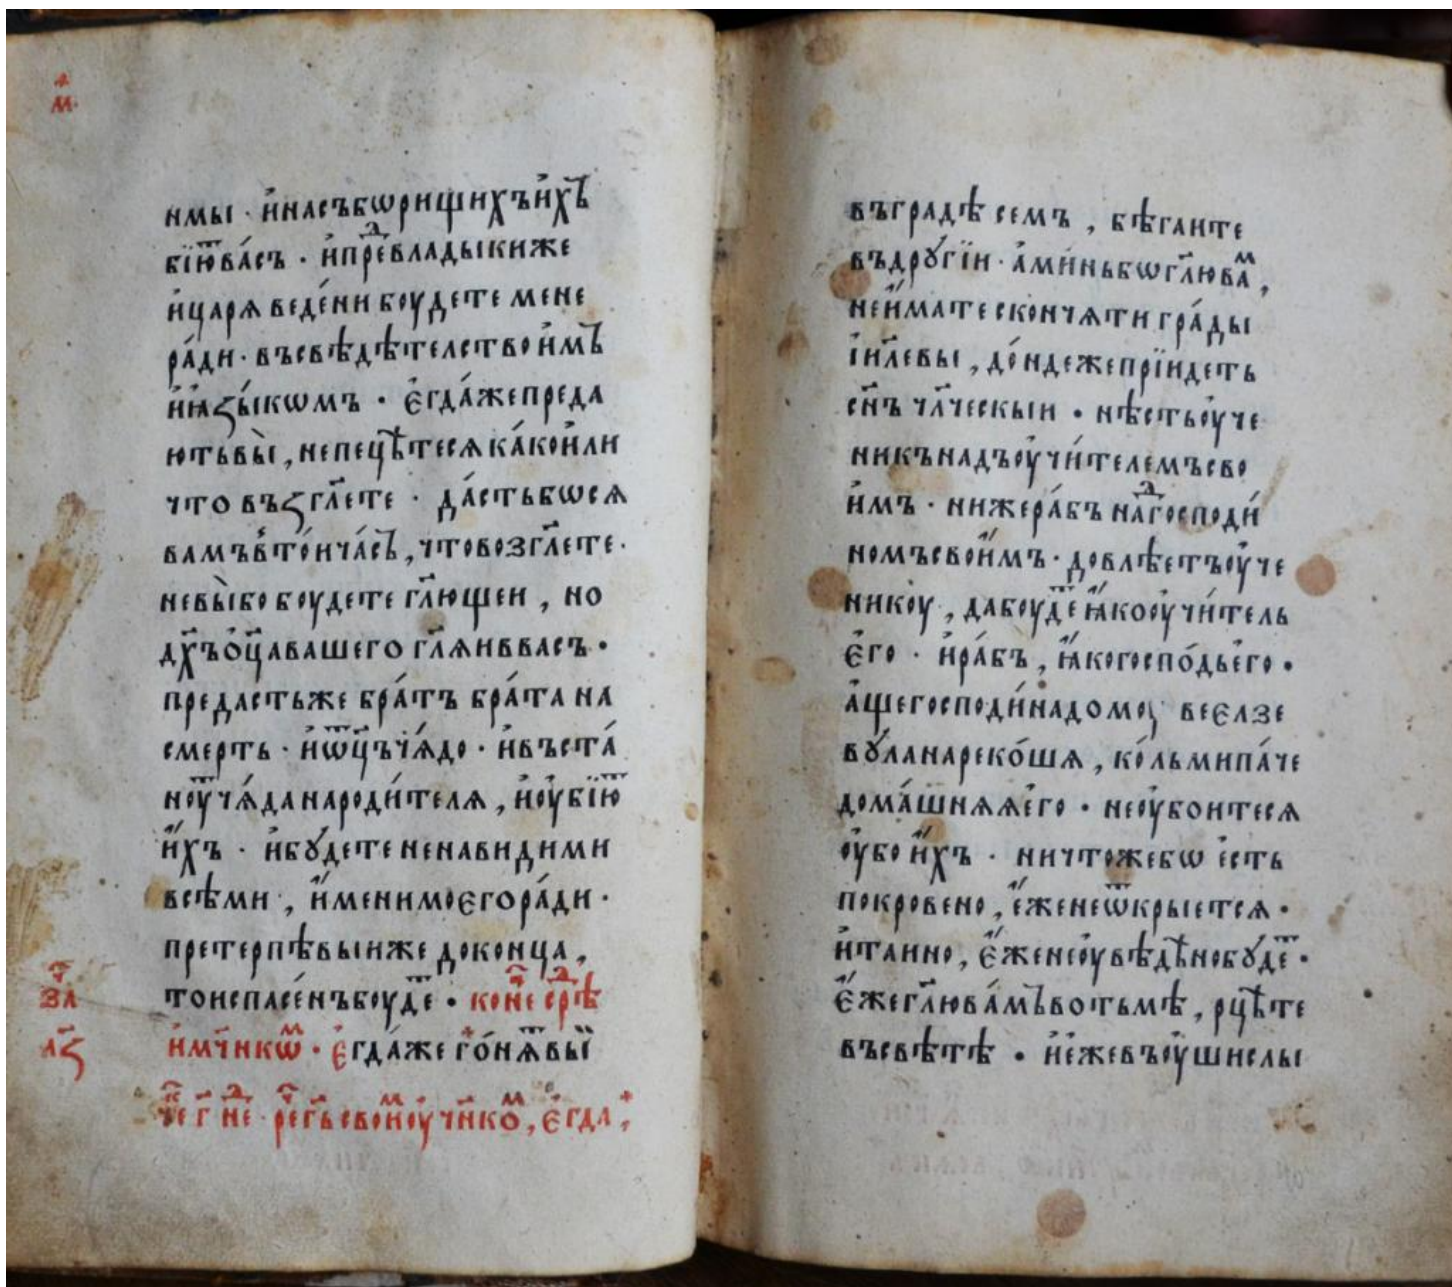 имы · и҆насъбѡрищихъи҆хъ
бїю҆ⷮва́съ · и҆преⷣвладыкиже
и҆царѧведе́нибоудетемене
ра́ди · въсвѣдѣтелствои҆мъ
и҆ꙗ҆зы́кѡмъ · є҆гда́жепреда
ютьвы̀ , непецѣтесѧка́кои҆ли
что възгл҃ете · да́стьбѡсѧ
вамъв̾то́ича́съ , чтовозгл҃ете ·
невы̀бобоудете гл҃ющеи , но
дх҃ъо҆ц҃авашего гл҃ѧиввасъ ·
предастьже бра́тъ бра́та на
смерть · и҆ѡ҆ц҃ъчѧ́до · и҆въста́
ноуⷮчѧ́данароди́телѧ , и҆оу҆бїюⷮ
и҆́хъ · и҆бꙋ́дете ненавидими
всѣми , и҆́менимоєгора́ди ·
претерпѣвыиже доконца ,
тоиспасе́нъбоудеⷮ · коне среⷣѣ
и҆мч҃нкѡⷨ · є҆гда́же го́нѧⷮвы̀
въградѣ семъ , бѣгаите
въдрꙋ́гїи · а҆ми́ньбѡгл҃юваⷨ ,
неи҆́мате скончѧти гра́ды
і҆и҃левы , до́ндежепрїидеть
сн҃ъ чл҃ческыи · нѣстьоу҆че
никънадъоу҆чи́телемъсво
и҆мъ · нижера́бъ наⷣгосподи́
номъсвои҆́мъ · довлѣетъоу҆че
никоу , дабоудеⷮ ꙗ҆́кооу҆чи́тель
є҆го · и҆ра́бъ , ꙗ҆́когоспо́дьє҆го ·
а҆щегосподи́надомоу веєлзе
вꙋ́ланареко́шѧ , ко́льмипа́че
дома́шнѧѧ҆его · неоу҆боитесѧ
оу҆бо и҆́хъ · ничто́жебѡ є҆сть
покровено , е҆́женеѿкрыетсѧ ·
и҆таино , є҆́женеоу҆вѣдѣнобꙋ́деⷮ ·
є҆́жегл҃юва́мъвотьмѣ , рцѣте
въсвѣтѣ · и҆е҆жевъоу҆шислы